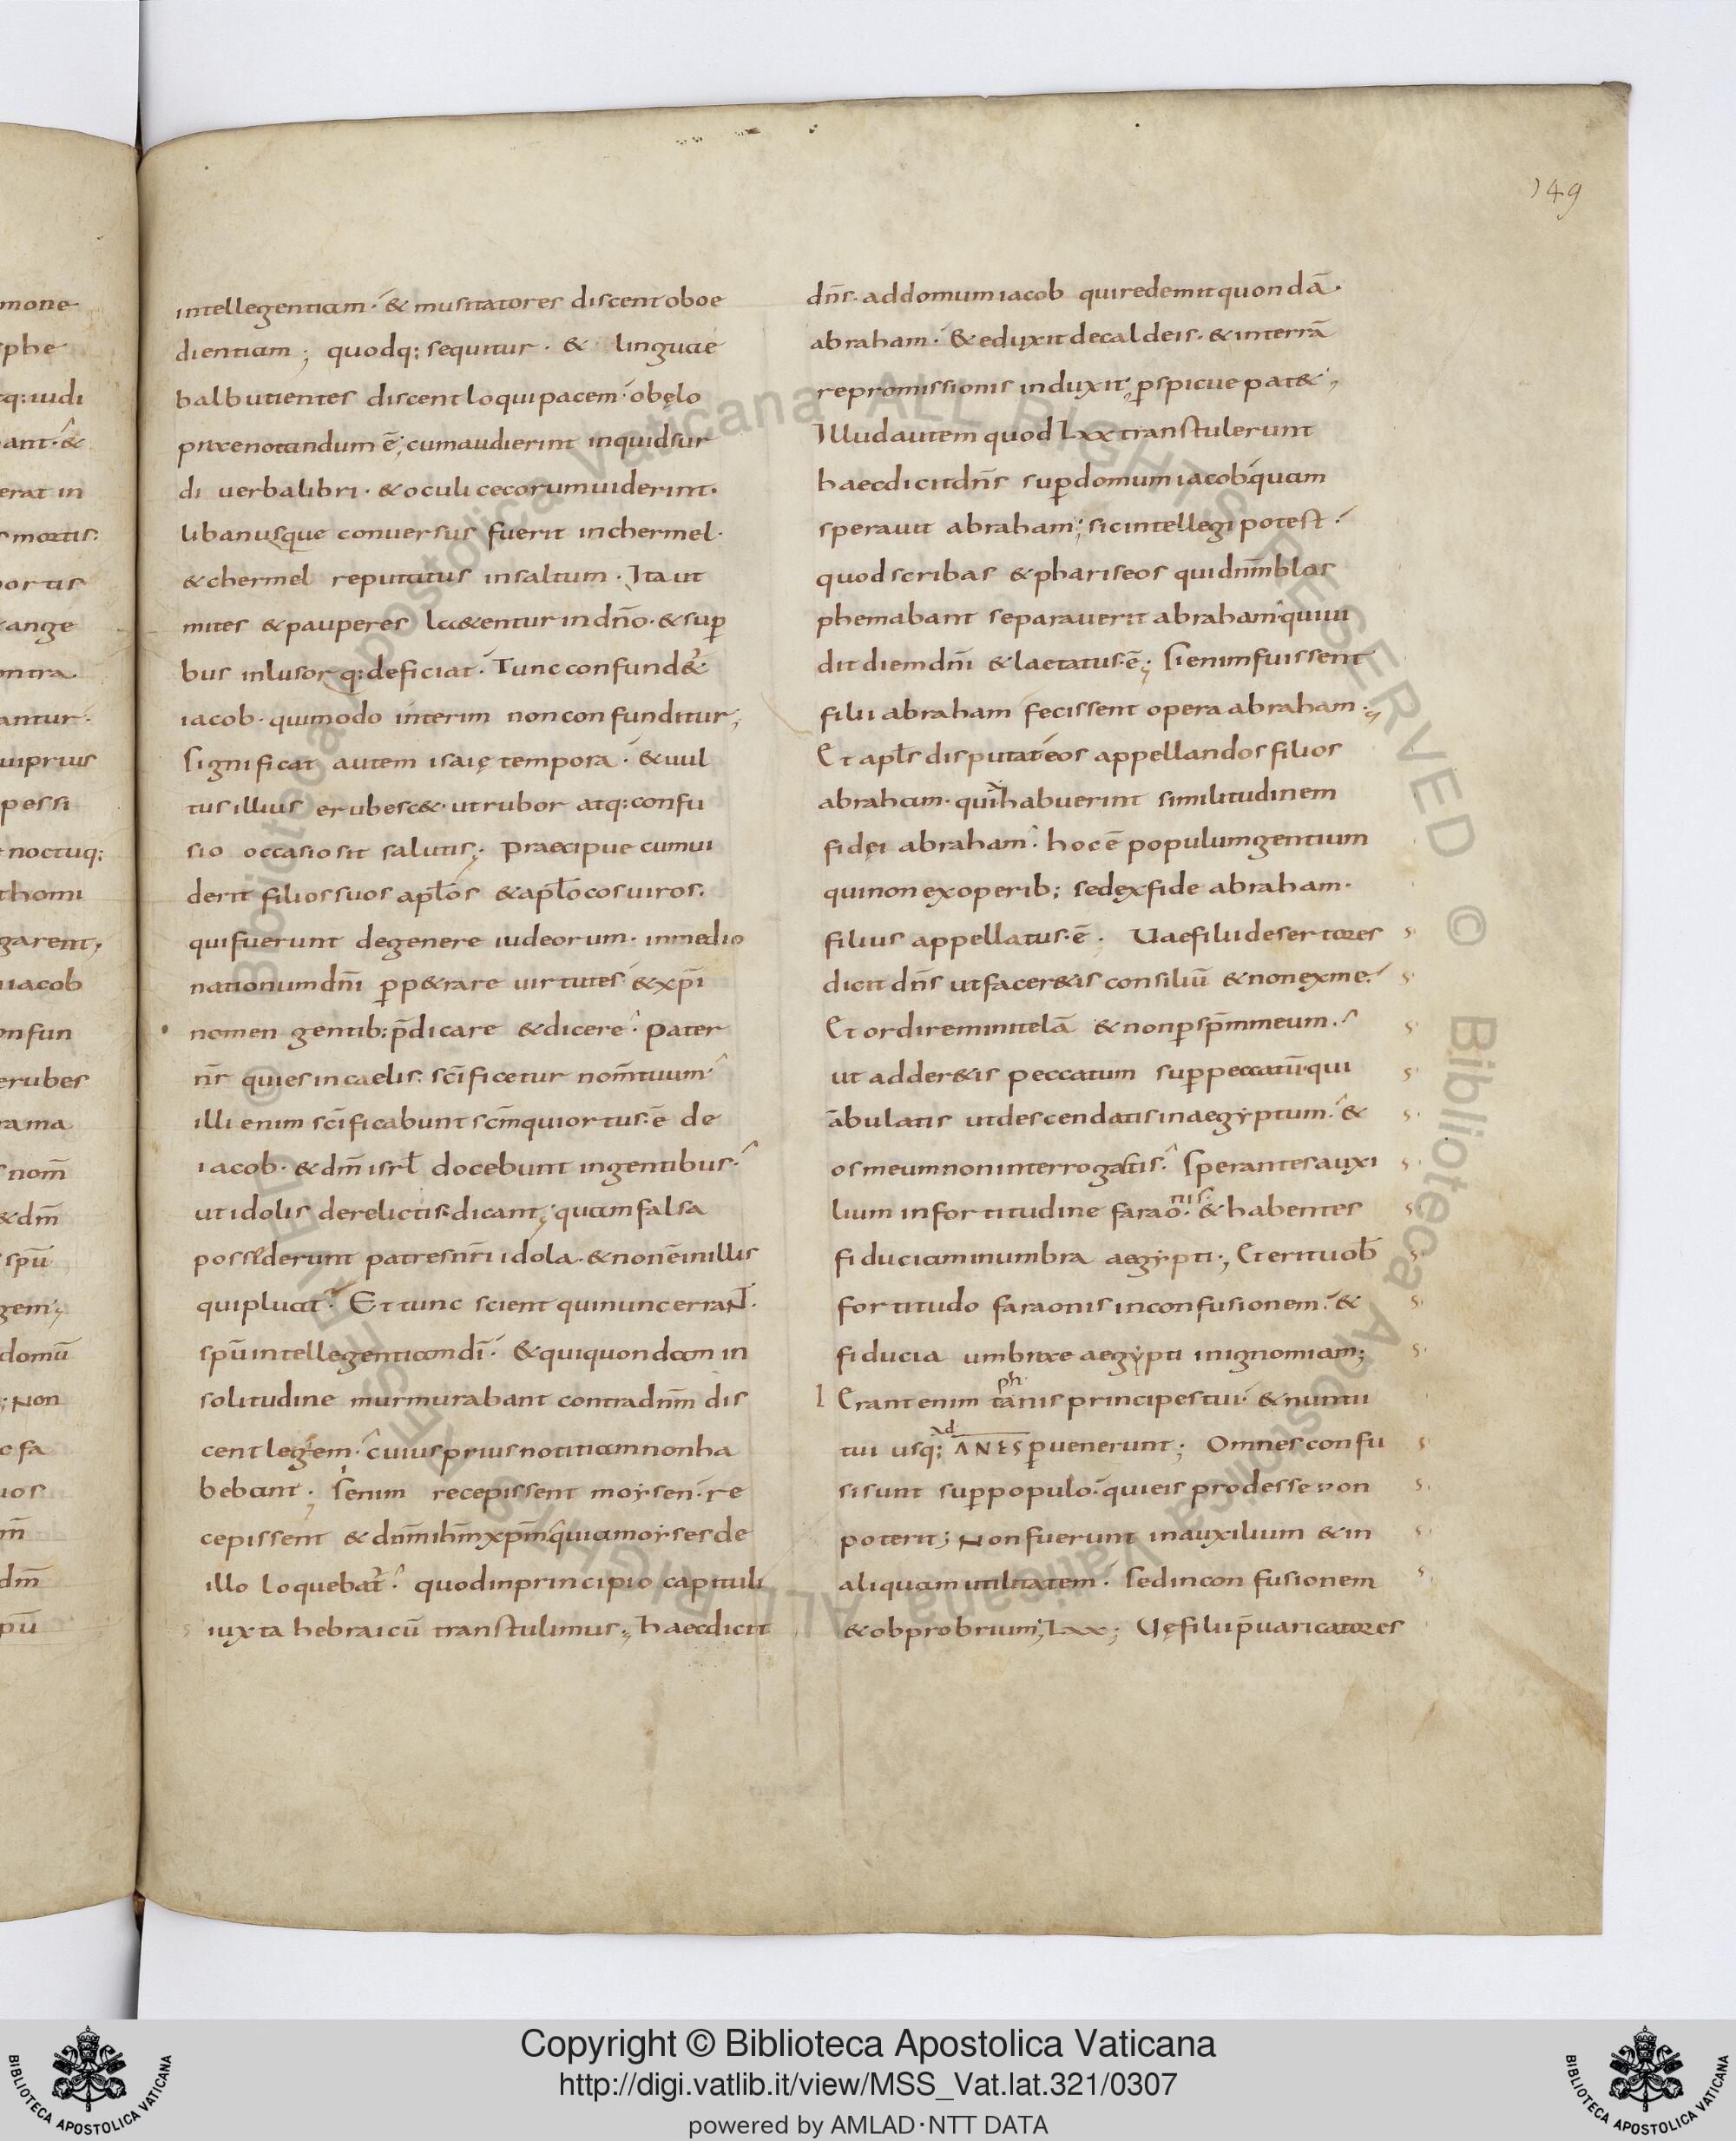 149
mone
sphe
tq: iudi
ant. &
erat in
smortis:
portis
ange
ontra
antur.
uiprius
pessi
noctuq:
thomi
garent,
iacob
onfun
erubes
rama
s nom̄
& dm̄
spū
gem;
domū
; Non
c fa
uos
dm̄
pū
intellegentiam. & musitatores discent oboe
dientiam; quodq: sequitur. & linguae
balbutientes discent loqui pacem. obęlo
praenotandum ē; cum audierint inquid sur
di uerba libri. & oculi cecorum uiderint.
libanusque conuersus fuerit in chermel.
& chermel reputatus in saltum. Ita ut
mites & pauperes laetentur in dn̄o. & suꝑ
bus inlusorq: deficiat. Tunc confund&ur
iacob. qui modo interim non confunditur;
significat autem isaię tempora. & uul
tus illius erubesc&. ut rubor atq: confu
sio occasio sit salutis; praecipue cum ui
derit filios suos apl̄os & apl̄ocos uiros.
qui fuerunt de genere iudeorum. in medio
nationum dn̄i ꝑp&rare uirtutes & xp̄i
nomen gentib: p̄dicare & dicere. pater
nr̄ qui es in caelis. sc̄ificetur nom̄ tuum
illi enim sc̄ificabunt sc̄m qui ortus ē de
iacob. & dm̄ isrl̄ docebunt in gentibus.
ut idolis derelictis dicant; quam falsa
possederunt patres nr̄i idola. & non ē in illis
qui pluat. Et tunc scient qui nunc errant.
spū intellegentiam dī. & qui quondam in
solitudine murmurabant contra dn̄m dis
cent legem. cuius prius notitiam non ha
bebant. si enim recepissent moysen. re
cepissent & dn̄m ihm̄ xpm̄ quia moyses de
illo loquebat̄. quod in principio capituli
iuxta hebraicū transtulimus; haec dicit
dn̄s. ad domum iacob qui redemit quondā.
abraham. & eduxit de caldeis. & in terrā
repromissionis induxit, ꝑspicue pat&;
Illud autem quod Lxx transtulerunt
haec dicit dn̄s suꝑ domum iacob quam
sperauit abraham; sic intellegi potest.
quod scribas & phariseos qui dn̄m blas
phemabant separauerit abraham qui ui
dit diem dn̄i & laetatus ē; Si enim fuissent
filii abraham fecissent opera abraham.
Et apl̄s disputat eos appellandos filios
abraham. qui habuerint similitudinem
fidei abraham. hoc ē populum gentium
qui non ex operib; sed ex fide abraham.
filius appellatus ē; Uae filii desertores
dicit dn̄s ut facer&is consiliū & non ex me.
Et ordiremini telā & non ꝑ spm̄ meum.
ut adder&is peccatum suꝑ peccatū qui
ābulatis ut descendatis in aegyptum. &
os meum non interrogastis. Sperantes auxi
lium in fortitudine faraonis. & habentes
fiduciam in umbra aegypti; Et erit uob̄
fortitudo faraonis in confusionem. &
fiducia umbrae aegypti in ignomiam;
Erant enim tanis principes tui. & nuntii
tui usq: ad ANES ꝑuenerunt; Omnes confu
si sunt suꝑ populo. qui eis prodesse non
poterit; Non fuerunt in auxilium & in
aliquam utilitatem. sed in confusionem
& obprobrium; Lxx; Uę filii p̄uaricatores
Copyright © Biblioteca Apostolica Vaticana
http://digi.vatlib.it/view/MSS_Vat.lat.321/0307
powered by AMLAD·NTT DATA
BIBLIOTECA APOSTOLICA VATICANA
BIBLIOTECA APOSTOLICA VATICANA
© Biblioteca Apostolica Vaticana ALL RIGHTS RESERVED © Biblioteca Apostolica Vaticana ALL RIGHTS RESERVED